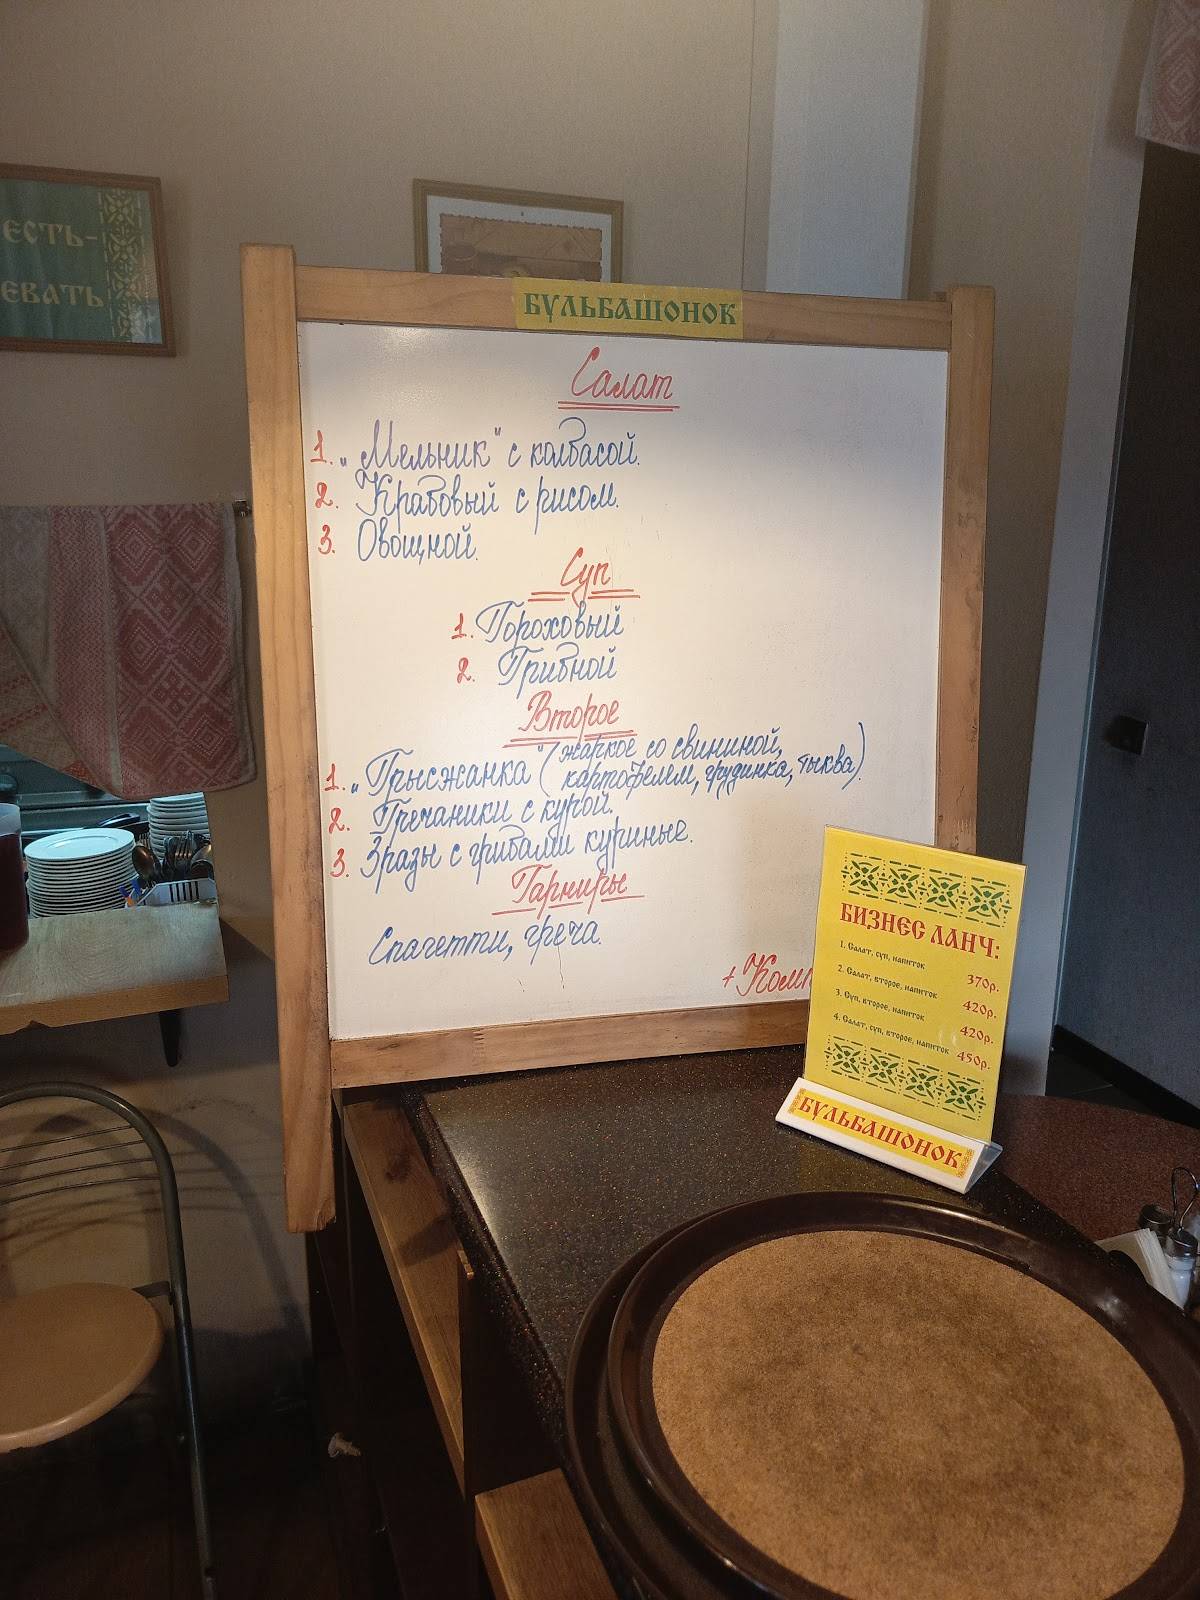 ЕСТЬ-
ЕВАТЬ
БУЛЬБАШОНОК
Салат
1. „Мельник" с колбасой.
2. Крабовый с рисом.
3. Овощной.
Суп
1. Гороховый
2. Грибной
Второе
1. „Прысжанка" (жаркое со свининой,
картофелем, грудинка, тыква).
2. Гречаники с курой.
3. Зразы с грибами куриные.
Гарниры
Спагетти, греча.
+Комп
БИЗНЕС ЛАНЧ:
1. Салат, суп, напиток 370р.
2. Салат, второе, напиток 420р.
3. Суп, второе, напиток 420р.
4. Салат, суп, второе, напиток 450р.
БУЛЬБАШОНОК